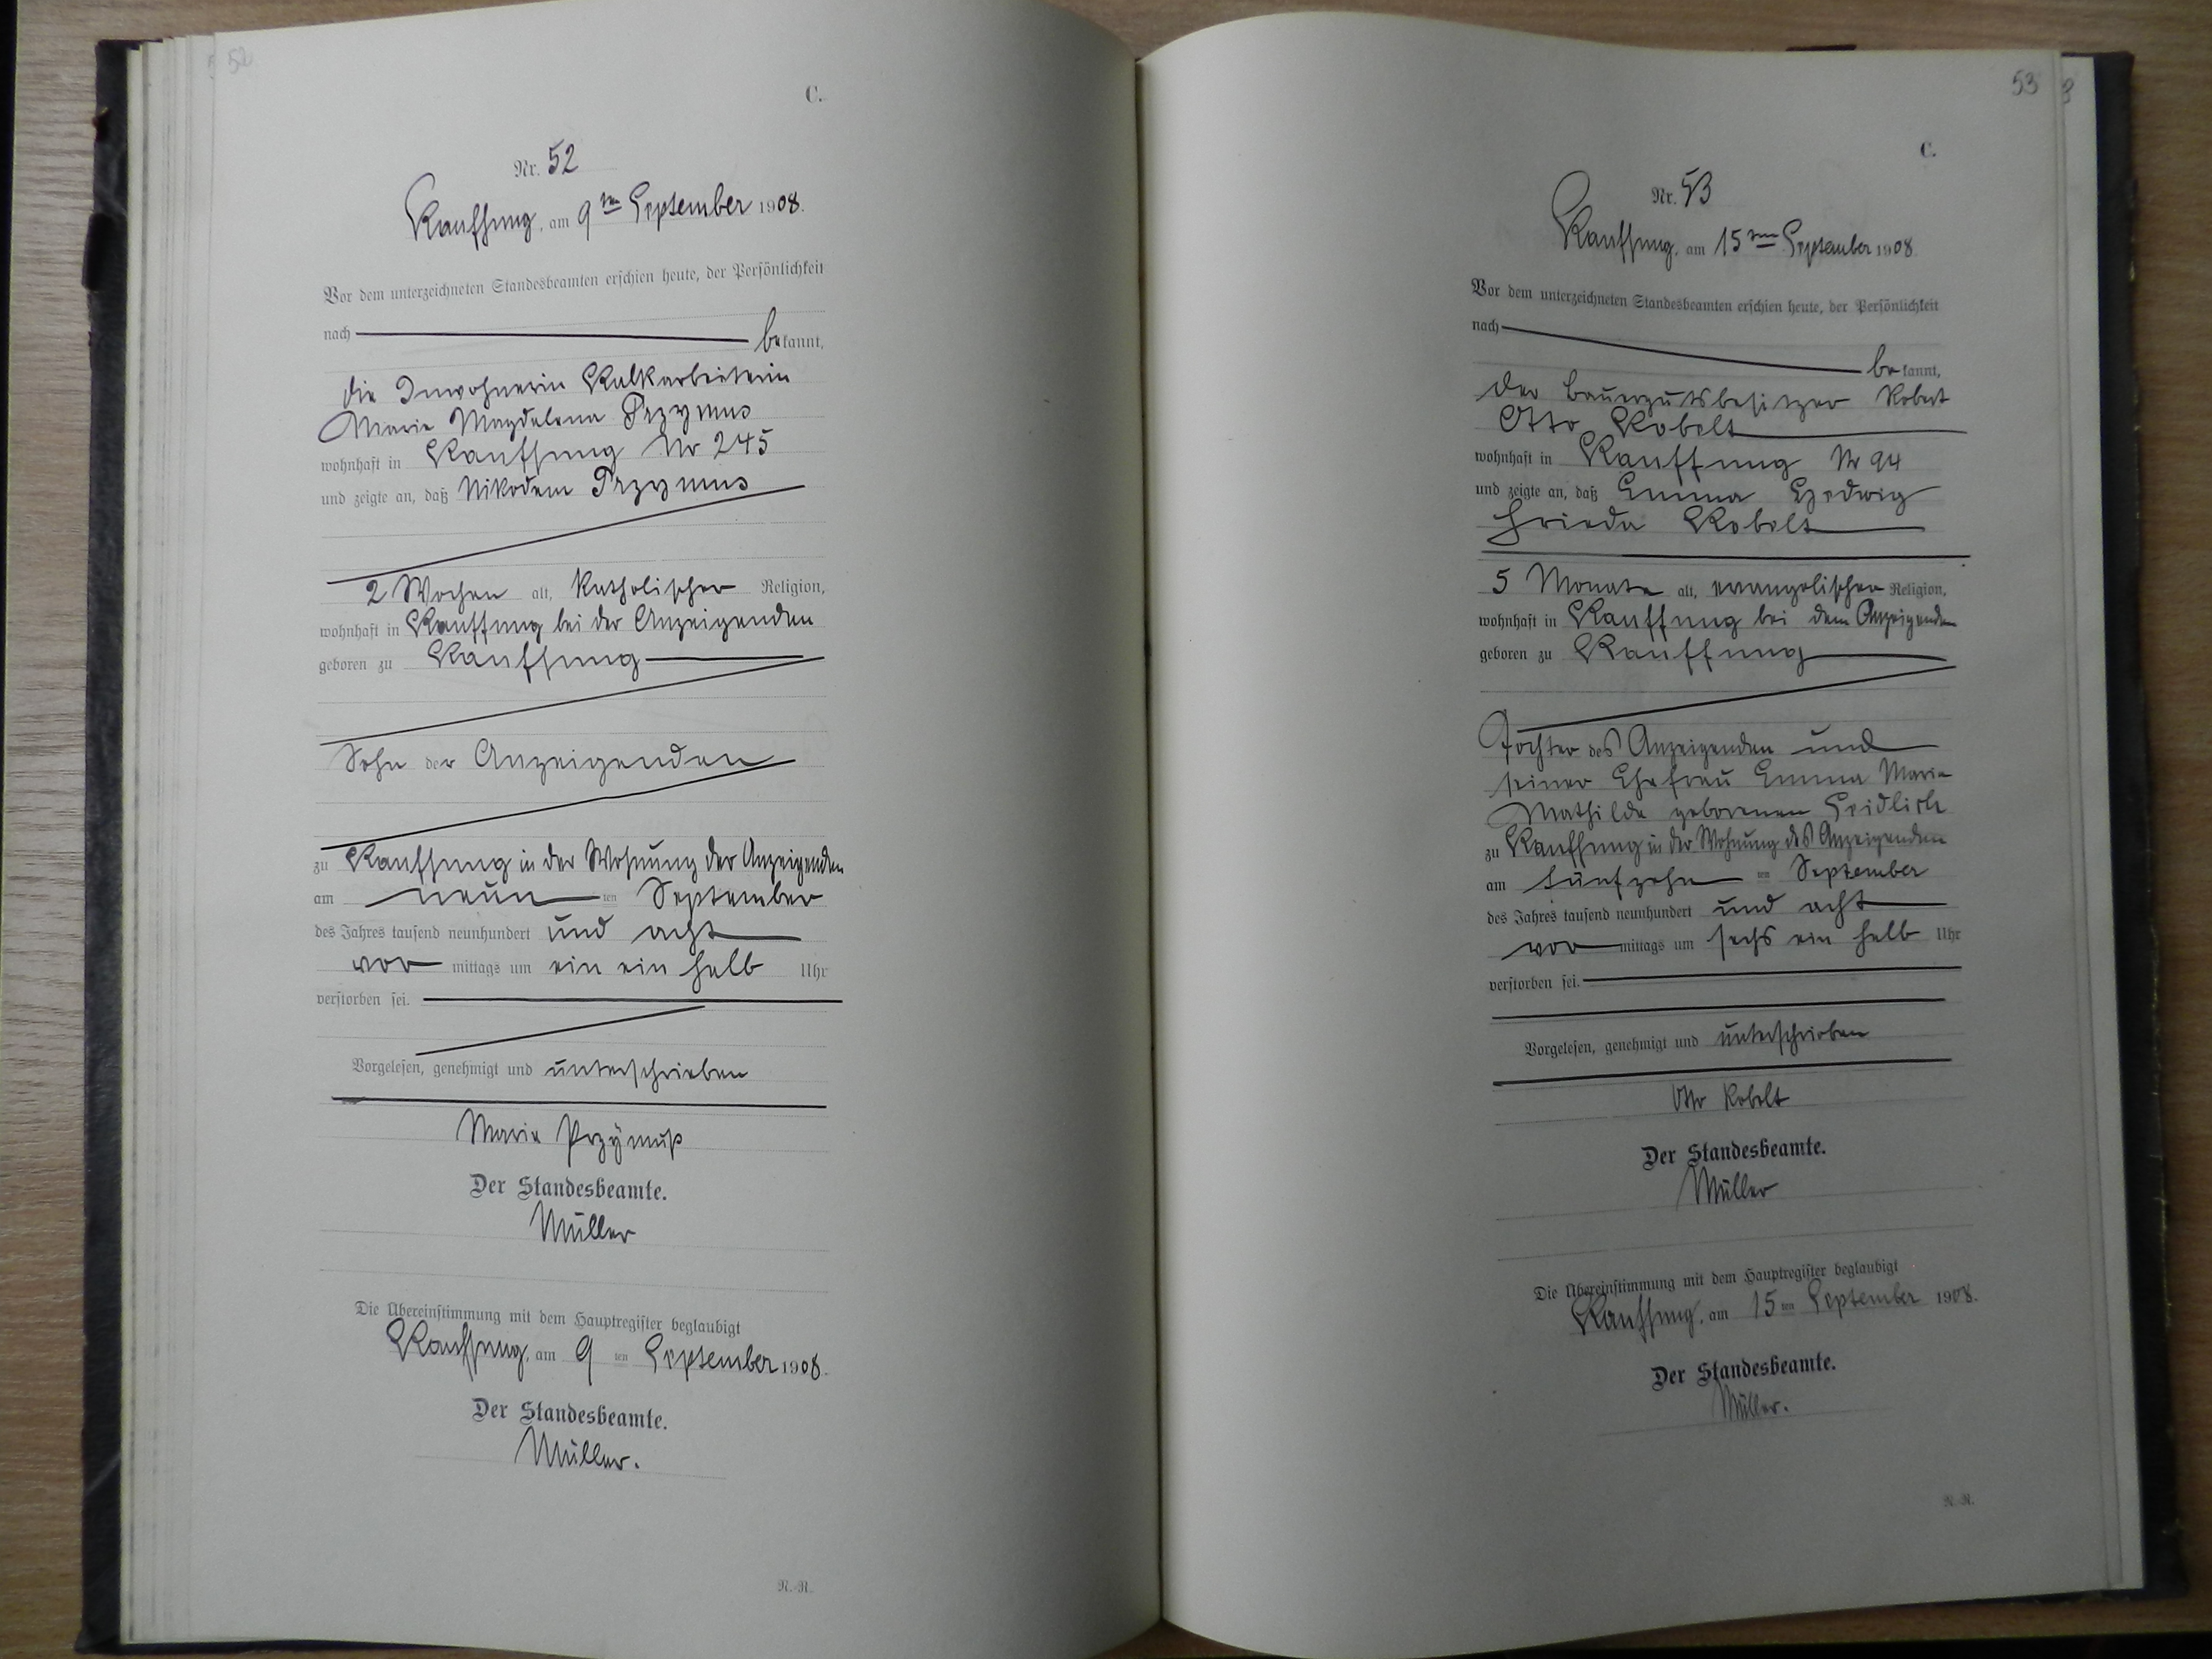 52
C.
Nr. 52
Kauffung, am 9ten September 1908.
Vor dem unterzeichneten Standesbeamten erschien heute, der Persönlichkeit
nach bekannt,
die Inwohnerin Kalkarbeiterin
Marie Magdalena Przymus
wohnhaft in Kauffung Nr 245
und zeigte an, daß Nikodem Przymus
2 Wochen alt, katholischer Religion,
wohnhaft in Kauffung bei der Anzeigenden
geboren zu Kauffung
Sohn der Anzeigenden
zu Kauffung in der Wohnung der Anzeigenden
am neun ten September
des Jahres tausend neunhundert und acht
vor mittags um ein ein halb Uhr
verstorben sei.
Vorgelesen, genehmigt und unterschrieben
Marie Przÿmuß
Der Standesbeamte.
Müller
Die Übereinstimmung mit dem Hauptregister beglaubigt
Kauffung, am 9 ten September 1908.
Der Standesbeamte.
Müller.
R.-R.
53
C.
Nr. 53
Kauffung, am 15ten September 1908.
Vor dem unterzeichneten Standesbeamten erschien heute, der Persönlichkeit
nach bekannt,
der Bauergutsbesitzer Robert
Otto Kobelt
wohnhaft in Kauffung Nr 94
und zeigte an, daß Emma Hedwig
Frieda Kobelt
5 Monate alt, evangelischer Religion,
wohnhaft in Kauffung bei dem Anzeigenden
geboren zu Kauffung
Tochter des Anzeigenden und
seiner Ehefrau Emma Marie
Mathilde geborenen
zu Kauffung in der Wohnung des Anzeigenden
am fünfzehn ten September
des Jahres tausend neunhundert und acht
vor mittags um sechs ein halb Uhr
verstorben sei.
Vorgelesen, genehmigt und unterschrieben
Otto Kobelt
Der Standesbeamte.
Müller
Die Übereinstimmung mit dem Hauptregister beglaubigt
Kauffung, am 15 ten September 1908.
Der Standesbeamte.
Müller.
R.-R.